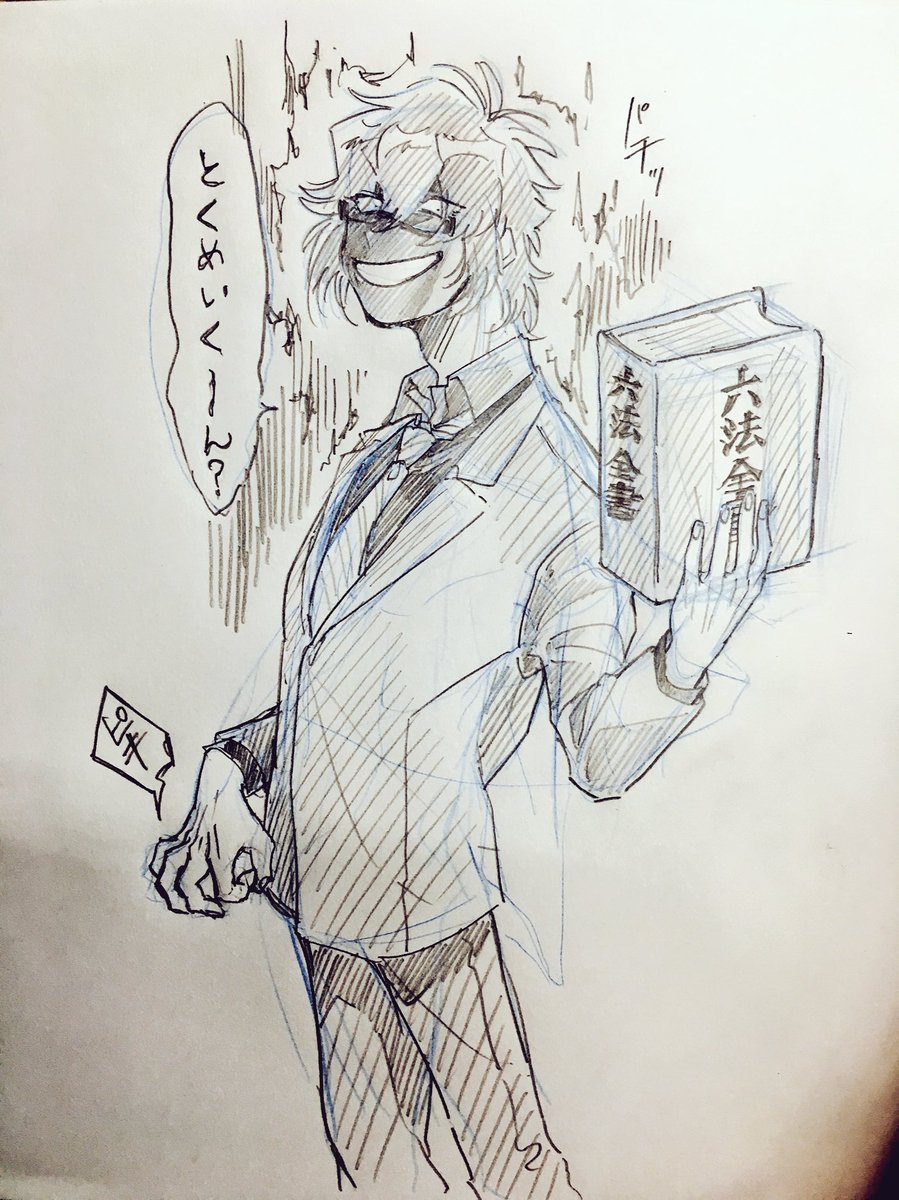 パチッ
とくめいく～ん？
六法全書
六法全書
ピキ